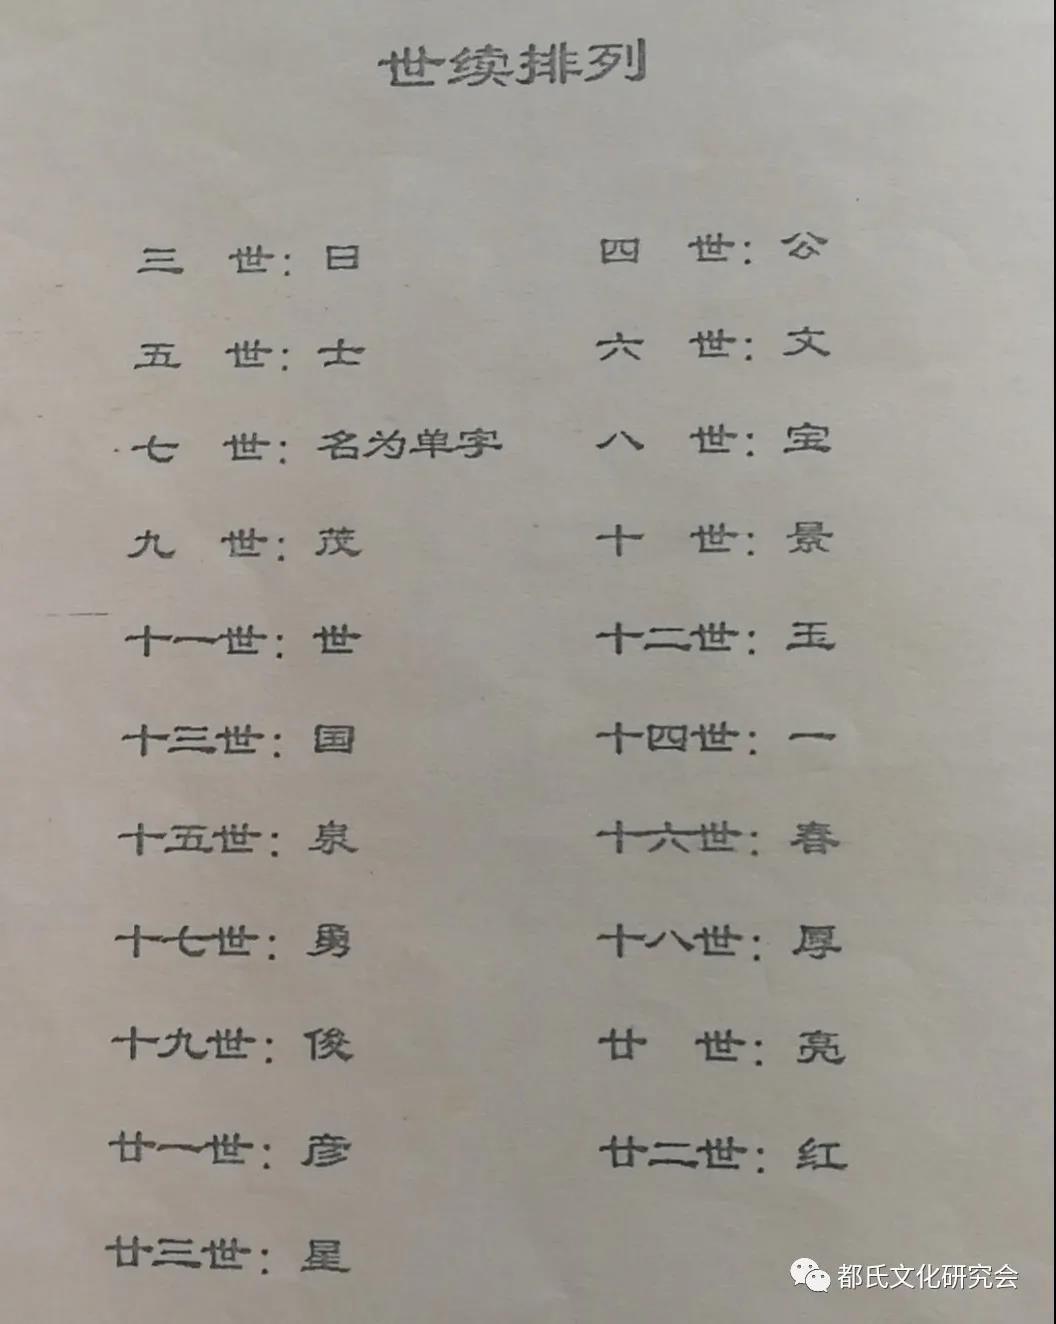 世续排列
三　世：日　四　世：公
五　世：士　六　世：文
七　世：名为单字　八　世：宝
九　世：茂　十　世：景
十一世：世　十二世：玉
十三世：国　十四世：一
十五世：泉　十六世：春
十七世：勇　十八世：厚
十九世：俊　廿　世：亮
廿一世：彦　廿二世：红
廿三世：星
都氏文化研究会